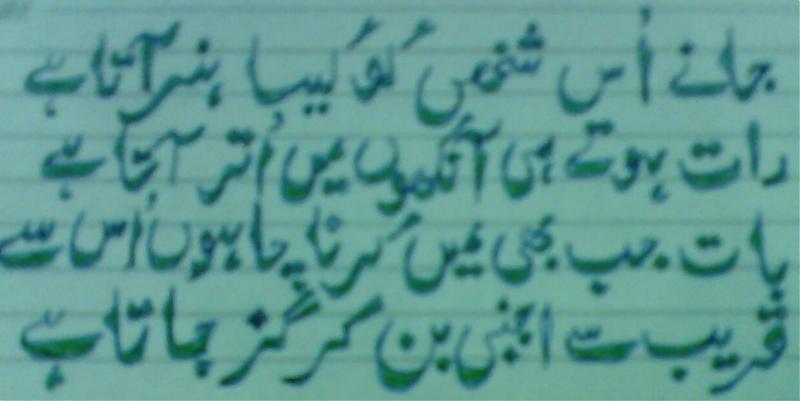 جانے اُس شخص کو کیسا ہنر آتا ہے
رات ہوتے ہی آنکھوں میں اُتر آتا ہے
بات جب بھی میں کرنا چاہوں اُس سے
قریب سے اجنبی بن کر گزر جاتا ہے